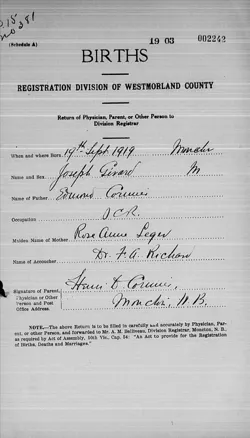 D. 15
no 281
(Schedule A)
19 03 002242
BIRTHS
REGISTRATION DIVISION OF WESTMORLAND COUNTY
Return of Physician, Parent, or Other Person to
Division Registrar
When and where Born 19th Sept 1919
Name and Sex Joseph M
Name of Father Edmond
Occupation I.C.R.
Maiden Name of Mother Rose Anna Leger
Name of Accoucher Dr. F. A. Richard
Signature of Parent,
Physician or Other
Person and Post
Office Address. N.B.
NOTE.—The above Return is to be filled in carefully and accurately by Physician, Par-
ent, or other Person, and forwarded to Mr. A. M. Belliveau, Division Registrar, Moncton, N. B.,
as required by Act of Assembly, 50th Vic., Cap. 24: "An Act to provide for the Registration
of Births, Deaths and Marriages."